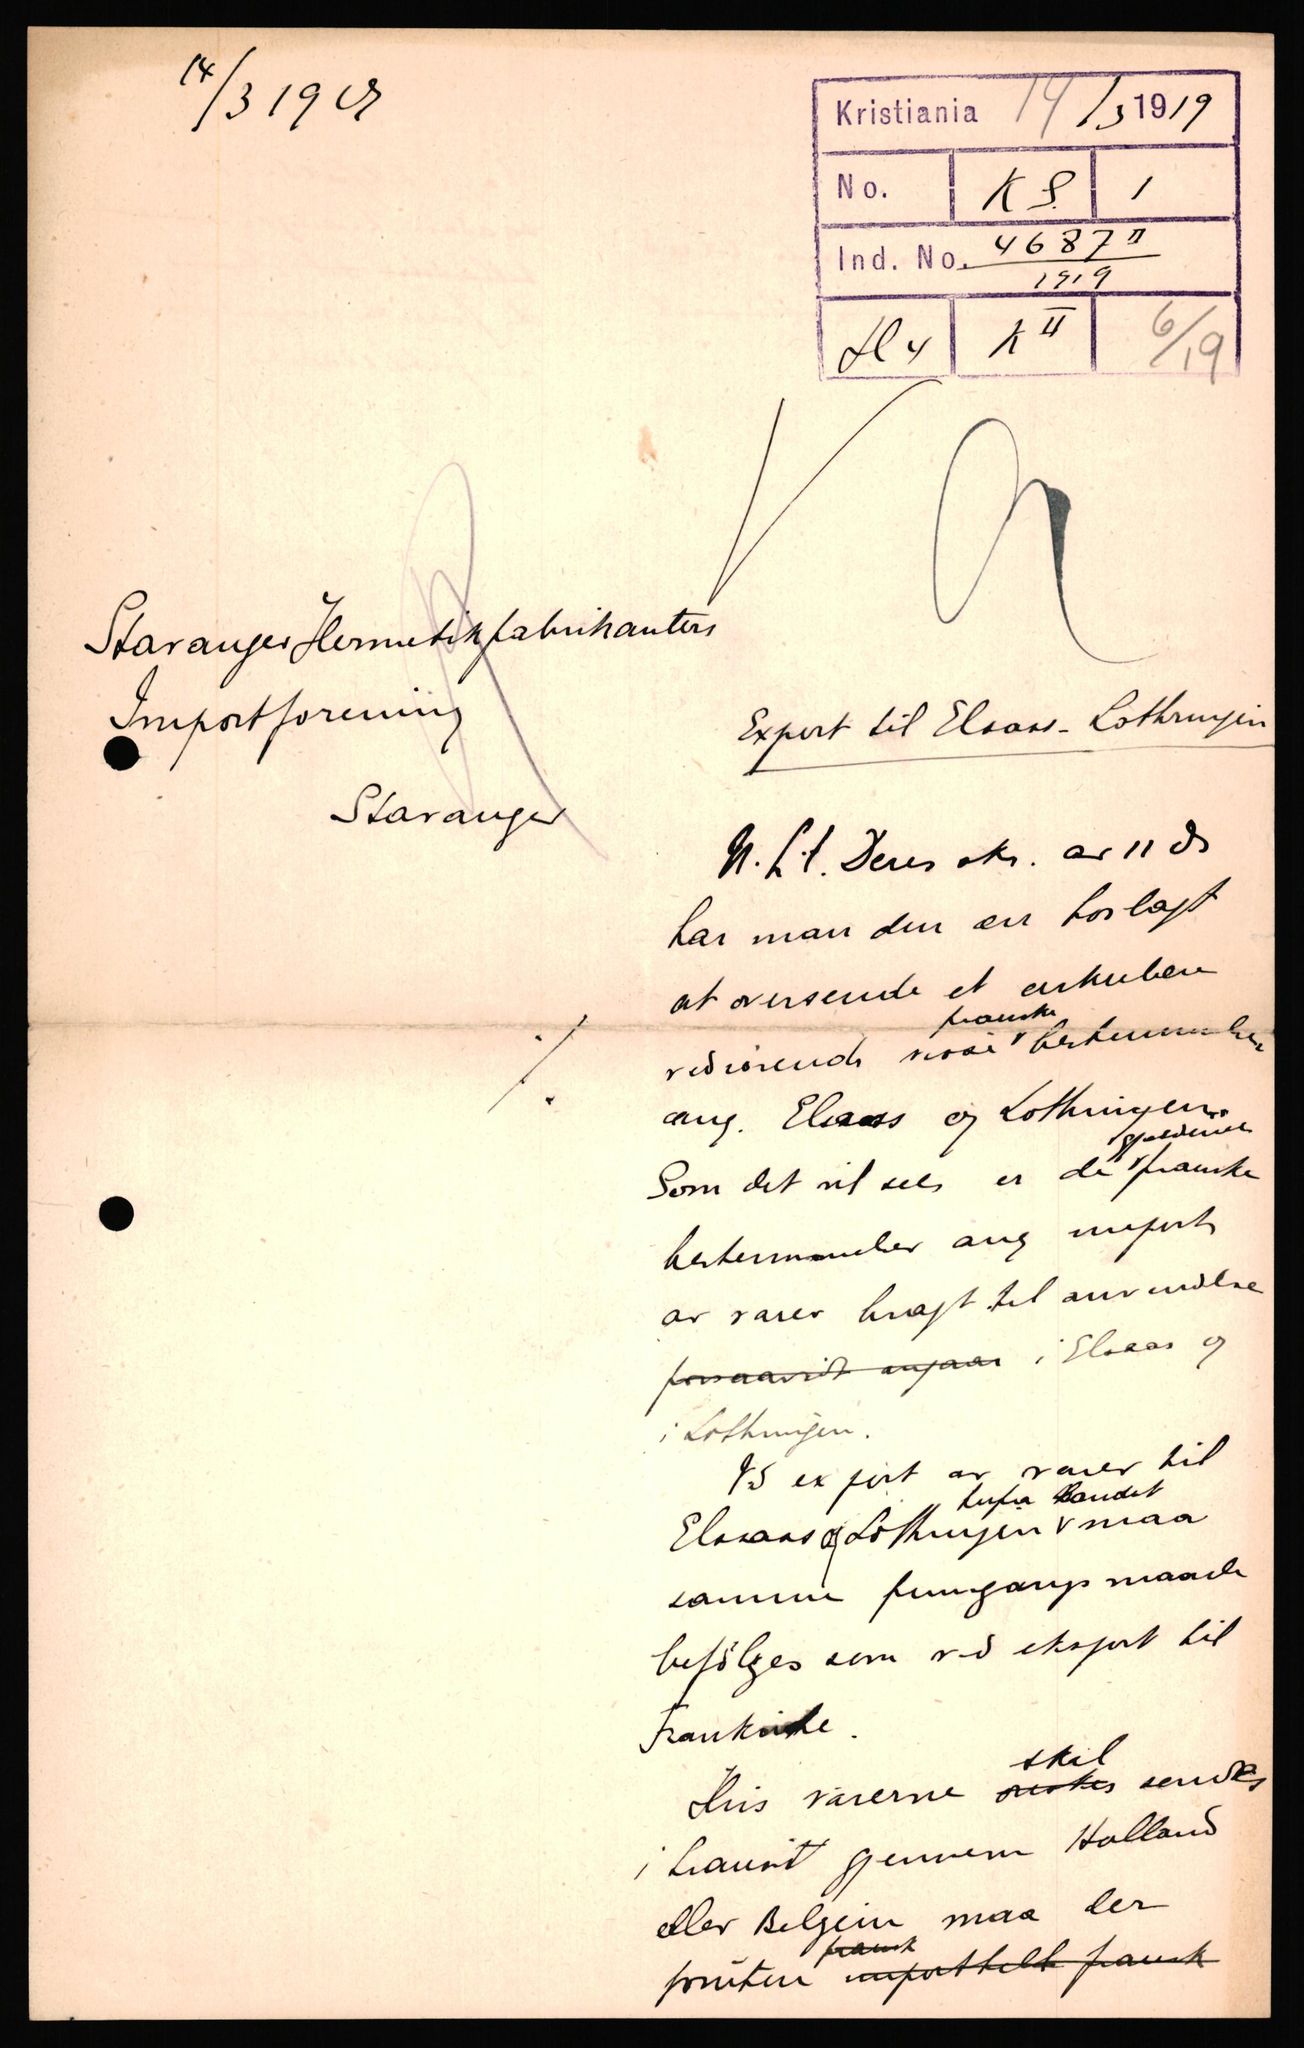 14/3 19
Kristiania 14/3 1919
No. K S. 1
Ind. No. 4687 II
1919
H 4 K II 6/19
Stavanger Hermetikfabrikanters
Importforening
Stavanger
Export til Elsass-Lothringen
N. f. t. Deres skr. av 11 ds
har man den ære hoslagt
at oversende et cirkulære
franske
vedrörende visse bestemmelser
ang. Elsass og Lothringen.
gjældende
Som det vil sees er de franske
bestemmelser ang import
av varer bragt til anvendelse
forsaavidt angaar i Elsass og
i Lothringen.
Ved export av varer til
herfra landet
Elsass og Lothringen maa
samme fremgangsmaade
befölges som ved eksport til
Frankrike.
skal
Hvis varerne önskes sendes
i transit gjennem Holland
eller Belgien maa der
fransk
foruten importtill fransk